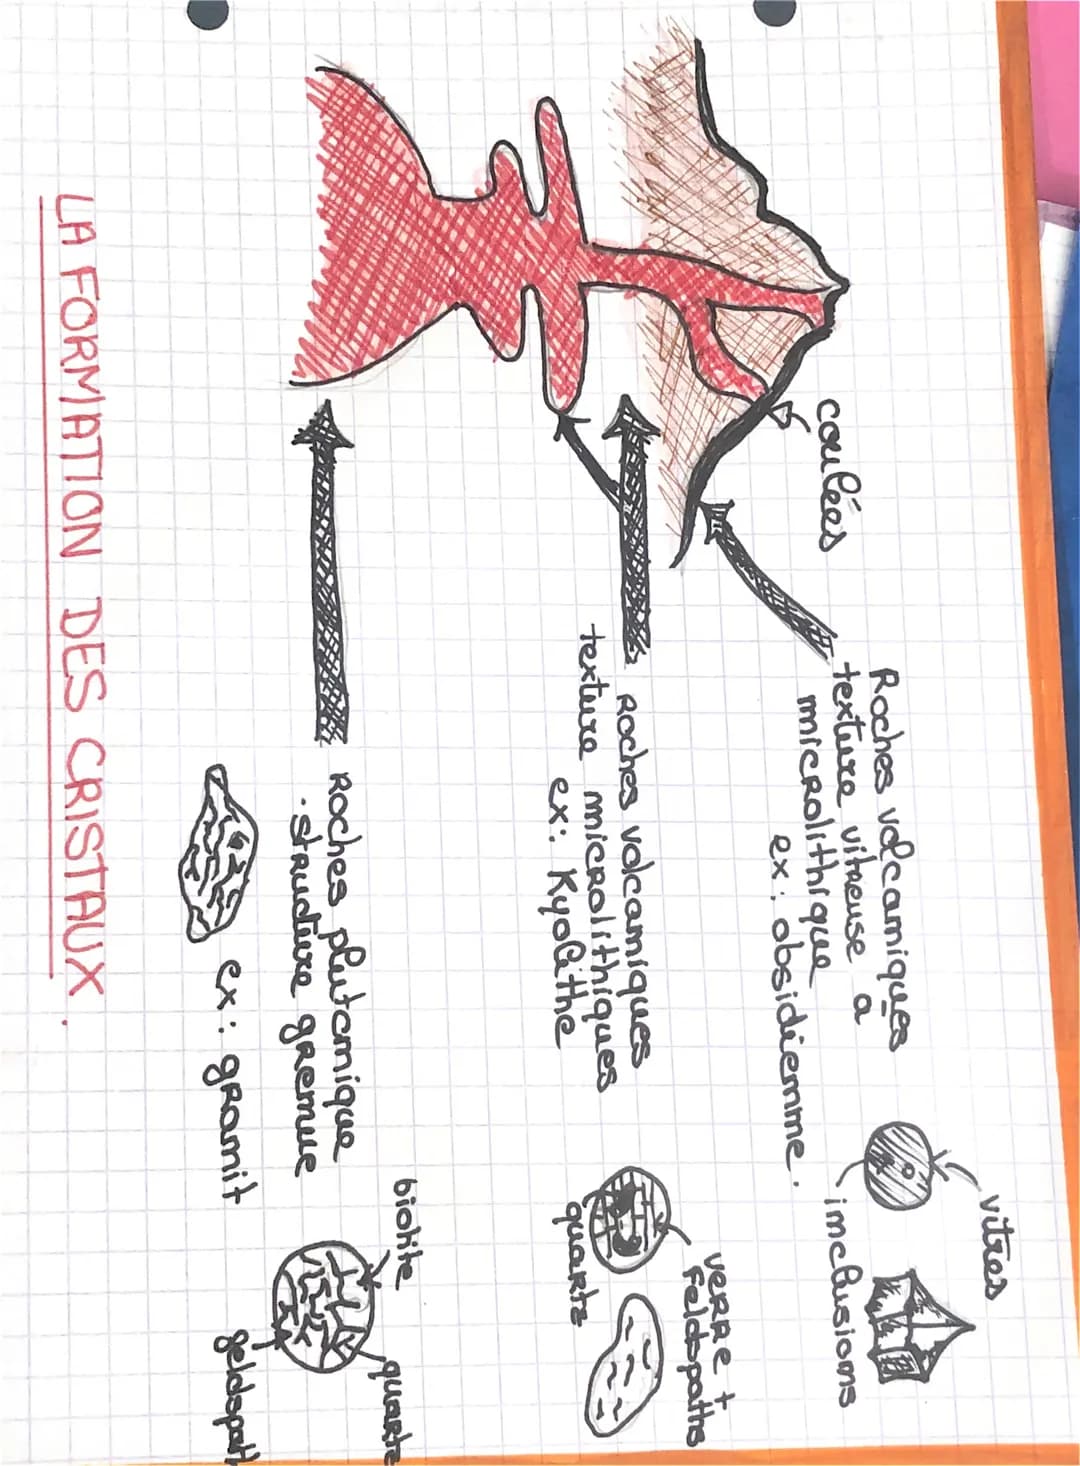 LA FORMATION DES CRISTAUX.
coulées
Roches volcaniques
texture vitreuse à
microlithique
ex: obsidienne.
vitres
inclusions
roches volcaniques
texture microlithiques
ex: Kyolithe
verre +
Feldspaths
quartz
Roches plutonique
·structure grenue
ex: granit
biotite
quartz
feldspath